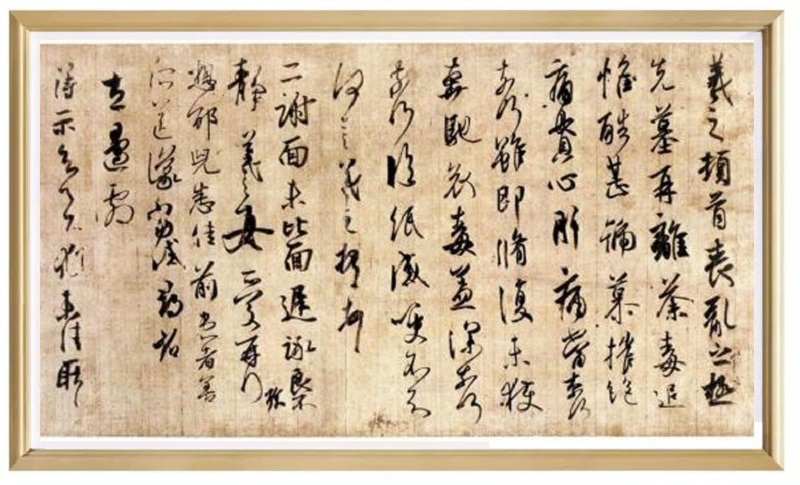 羲之頓首喪亂之極
先墓再離荼毒追
惟酷甚號慕摧絕
痛貫心肝痛當奈何
奈何雖即脩復未獲
奔馳哀毒益深奈何
奈何臨紙感哽不知
何言羲之頓首頓首
二謝面未比面遲詠良不
靜羲之女愛再拜
想邵兒悉佳前患者善
所送議當試尋省
左邊劇
得示知足下猶未佳耿